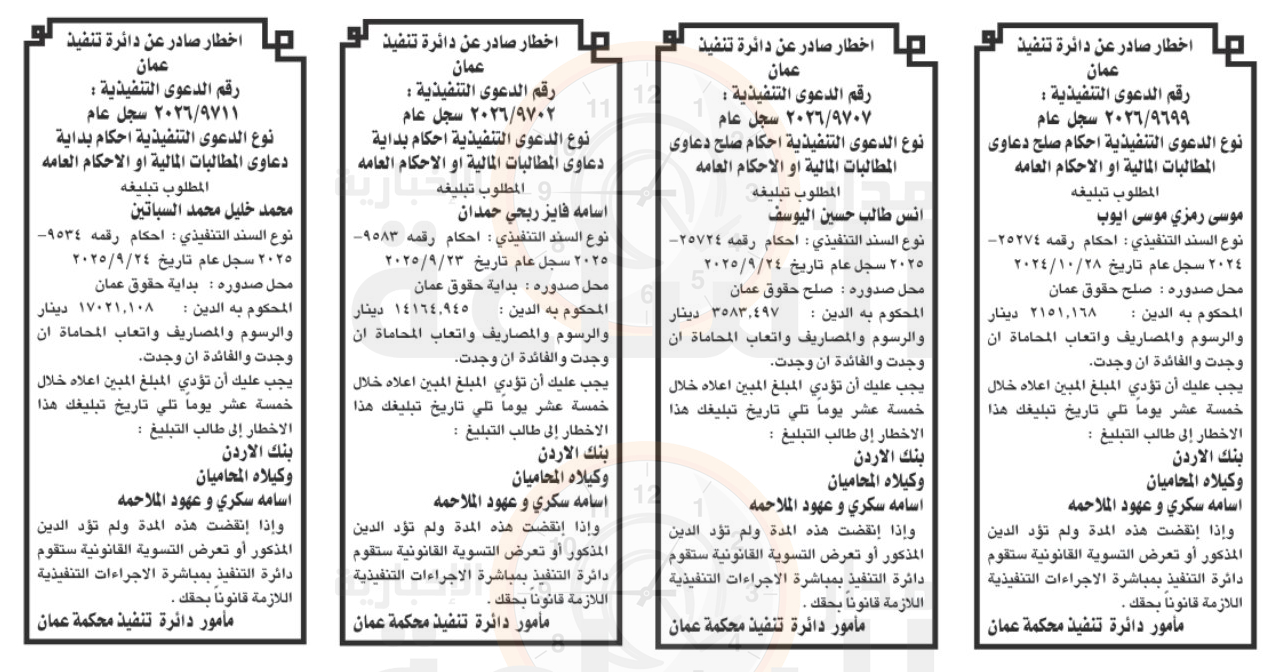 اخطار صادر عن دائرة تنفيذ
عمان
رقم الدعوى التنفيذية :
٢٠٢٦/٩٦٩٩ سجل عام
نوع الدعوى التنفيذية احكام صلح دعاوى
المطالبات المالية او الاحكام العامه
المطلوب تبليغه
موسى رمزي موسى ايوب
نوع السند التنفيذي : احكام رقمه ٢٥٢٧٤-
٢٠٢٤ سجل عام تاريخ ٢٠٢٤/١٠/٢٨
محل صدوره : صلح حقوق عمان
المحكوم به الدين : ٢١٥١,١٦٨ دينار
والرسوم والمصاريف واتعاب المحاماة ان
وجدت والفائدة ان وجدت.
يجب عليك أن تؤدي المبلغ المبين اعلاه خلال
خمسة عشر يوماً تلي تاريخ تبليغك هذا
الاخطار إلى طالب التبليغ :
بنك الاردن
وكيلاه المحاميان
اسامه سكري و عهود الملاحمه
وإذا إنقضت هذه المدة ولم تؤد الدين
المذكور أو تعرض التسوية القانونية ستقوم
دائرة التنفيذ بمباشرة الاجراءات التنفيذية
اللازمة قانوناً بحقك .
مأمور دائرة تنفيذ محكمة عمان
اخطار صادر عن دائرة تنفيذ
عمان
رقم الدعوى التنفيذية :
٢٠٢٦/٩٧٠٧ سجل عام
نوع الدعوى التنفيذية احكام صلح دعاوى
المطالبات المالية او الاحكام العامه
المطلوب تبليغه
انس طالب حسين اليوسف
نوع السند التنفيذي : احكام رقمه ٢٥٧٢٤-
٢٠٢٥ سجل عام تاريخ ٢٠٢٥/٩/٢٤
محل صدوره : صلح حقوق عمان
المحكوم به الدين : ٣٥٨٣,٤٩٧ دينار
والرسوم والمصاريف واتعاب المحاماة ان
وجدت والفائدة ان وجدت.
يجب عليك أن تؤدي المبلغ المبين اعلاه خلال
خمسة عشر يوماً تلي تاريخ تبليغك هذا
الاخطار إلى طالب التبليغ :
بنك الاردن
وكيلاه المحاميان
اسامه سكري و عهود الملاحمه
وإذا إنقضت هذه المدة ولم تؤد الدين
المذكور أو تعرض التسوية القانونية ستقوم
دائرة التنفيذ بمباشرة الاجراءات التنفيذية
اللازمة قانوناً بحقك .
مأمور دائرة تنفيذ محكمة عمان
اخطار صادر عن دائرة تنفيذ
عمان
رقم الدعوى التنفيذية :
٢٠٢٦/٩٧٠٢ سجل عام
نوع الدعوى التنفيذية احكام بداية
دعاوى المطالبات المالية او الاحكام العامه
المطلوب تبليغه
اسامه فايز ربحي حمدان
نوع السند التنفيذي : احكام رقمه ٩٥٨٣-
٢٠٢٥ سجل عام تاريخ ٢٠٢٥/٩/٢٣
محل صدوره : بداية حقوق عمان
المحكوم به الدين : ١٤١٦٤,٩٤٥ دينار
والرسوم والمصاريف واتعاب المحاماة ان
وجدت والفائدة ان وجدت.
يجب عليك أن تؤدي المبلغ المبين اعلاه خلال
خمسة عشر يوماً تلي تاريخ تبليغك هذا
الاخطار إلى طالب التبليغ :
بنك الاردن
وكيلاه المحاميان
اسامه سكري و عهود الملاحمه
وإذا إنقضت هذه المدة ولم تؤد الدين
المذكور أو تعرض التسوية القانونية ستقوم
دائرة التنفيذ بمباشرة الاجراءات التنفيذية
اللازمة قانوناً بحقك .
مأمور دائرة تنفيذ محكمة عمان
اخطار صادر عن دائرة تنفيذ
عمان
رقم الدعوى التنفيذية :
٢٠٢٦/٩٧١١ سجل عام
نوع الدعوى التنفيذية احكام بداية
دعاوى المطالبات المالية او الاحكام العامه
المطلوب تبليغه
محمد خليل محمد السباتين
نوع السند التنفيذي : احكام رقمه ٩٥٣٤-
٢٠٢٥ سجل عام تاريخ ٢٠٢٥/٩/٢٤
محل صدوره : بداية حقوق عمان
المحكوم به الدين : ١٧٠٢١,١٠٨ دينار
والرسوم والمصاريف واتعاب المحاماة ان
وجدت والفائدة ان وجدت.
يجب عليك أن تؤدي المبلغ المبين اعلاه خلال
خمسة عشر يوماً تلي تاريخ تبليغك هذا
الاخطار إلى طالب التبليغ :
بنك الاردن
وكيلاه المحاميان
اسامه سكري و عهود الملاحمه
وإذا إنقضت هذه المدة ولم تؤد الدين
المذكور أو تعرض التسوية القانونية ستقوم
دائرة التنفيذ بمباشرة الاجراءات التنفيذية
اللازمة قانوناً بحقك .
مأمور دائرة تنفيذ محكمة عمان